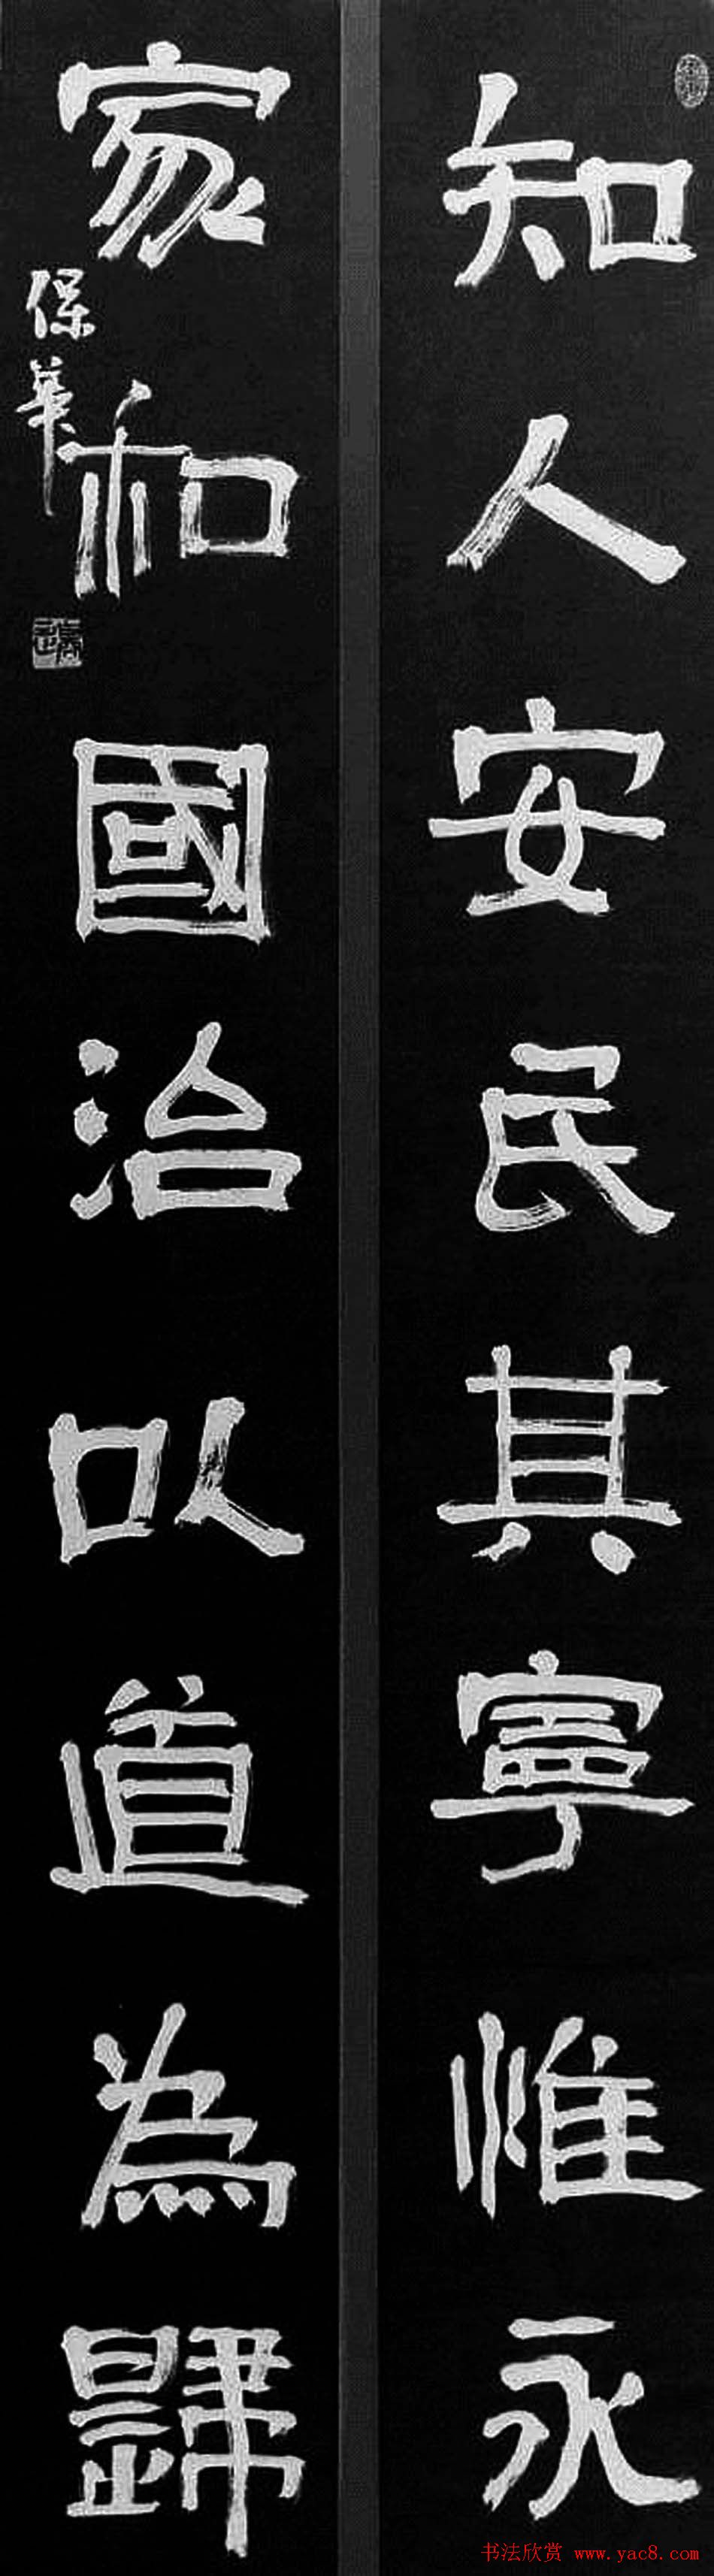 知人安民其寧惟永
家和國治以道為歸
保華
书法欣赏 www.yac8.com